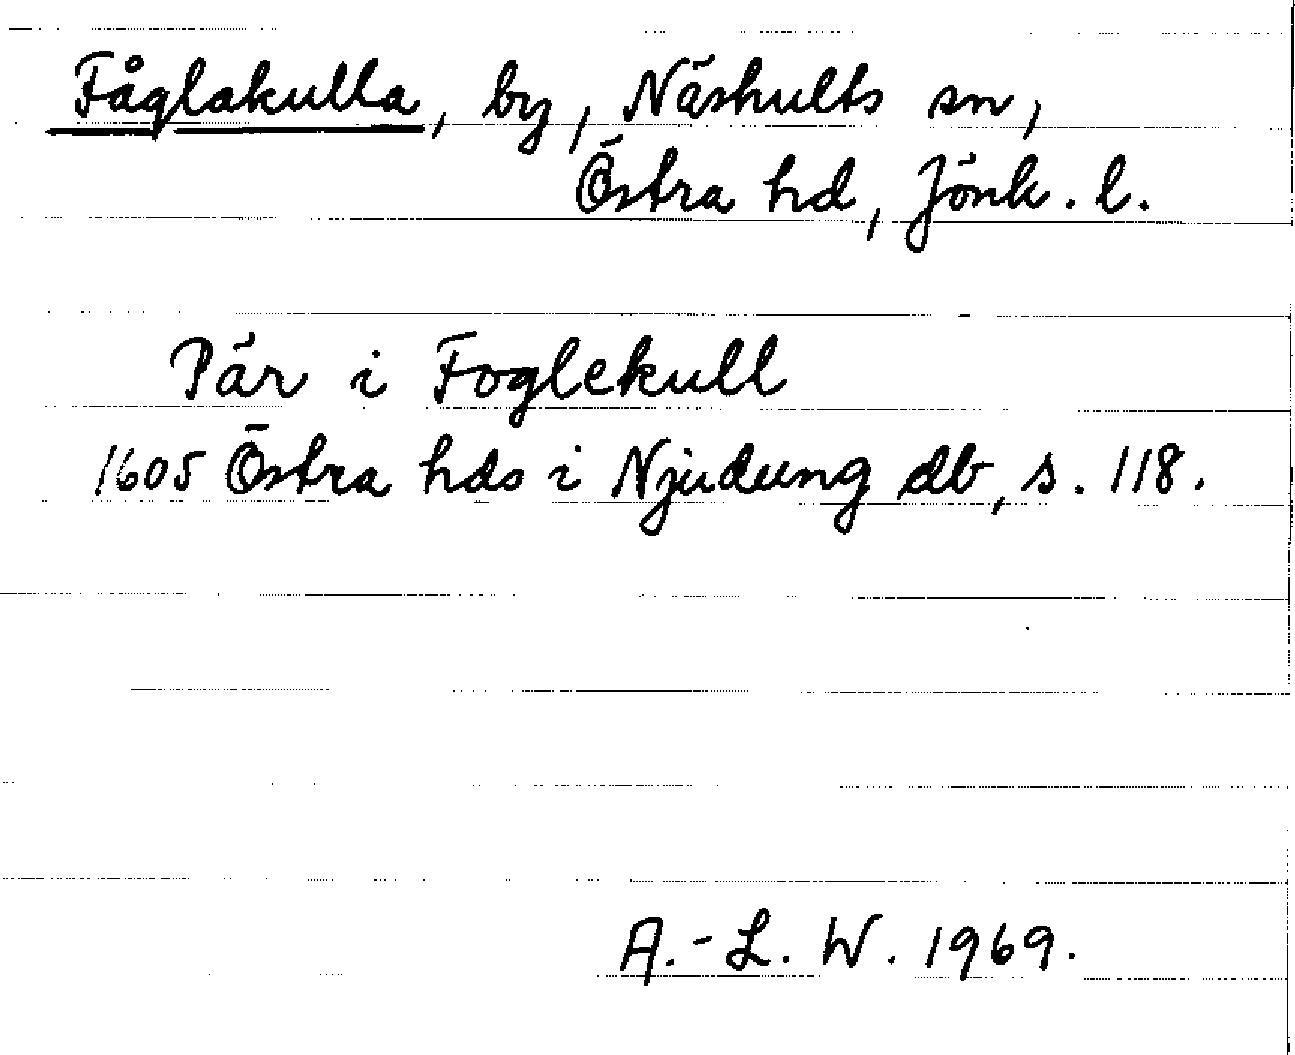 Fåglakulla, by, Näshults sn,
Östra hd, Jönk. l.
Pär i Foglekull
1605 Östra hds i Njudung db, s. 118.
A.-L. W. 1969.